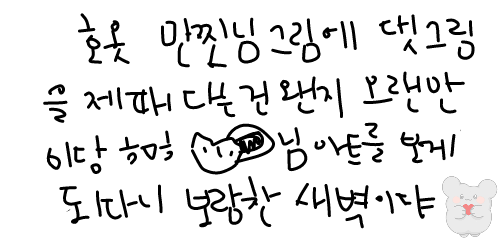 호옷 만찐님그림에 댓그림
을 제때 다는건 왠지 오랜만
이당 흠흠 님아트를 보게
되다니 보람찬 새벽이야